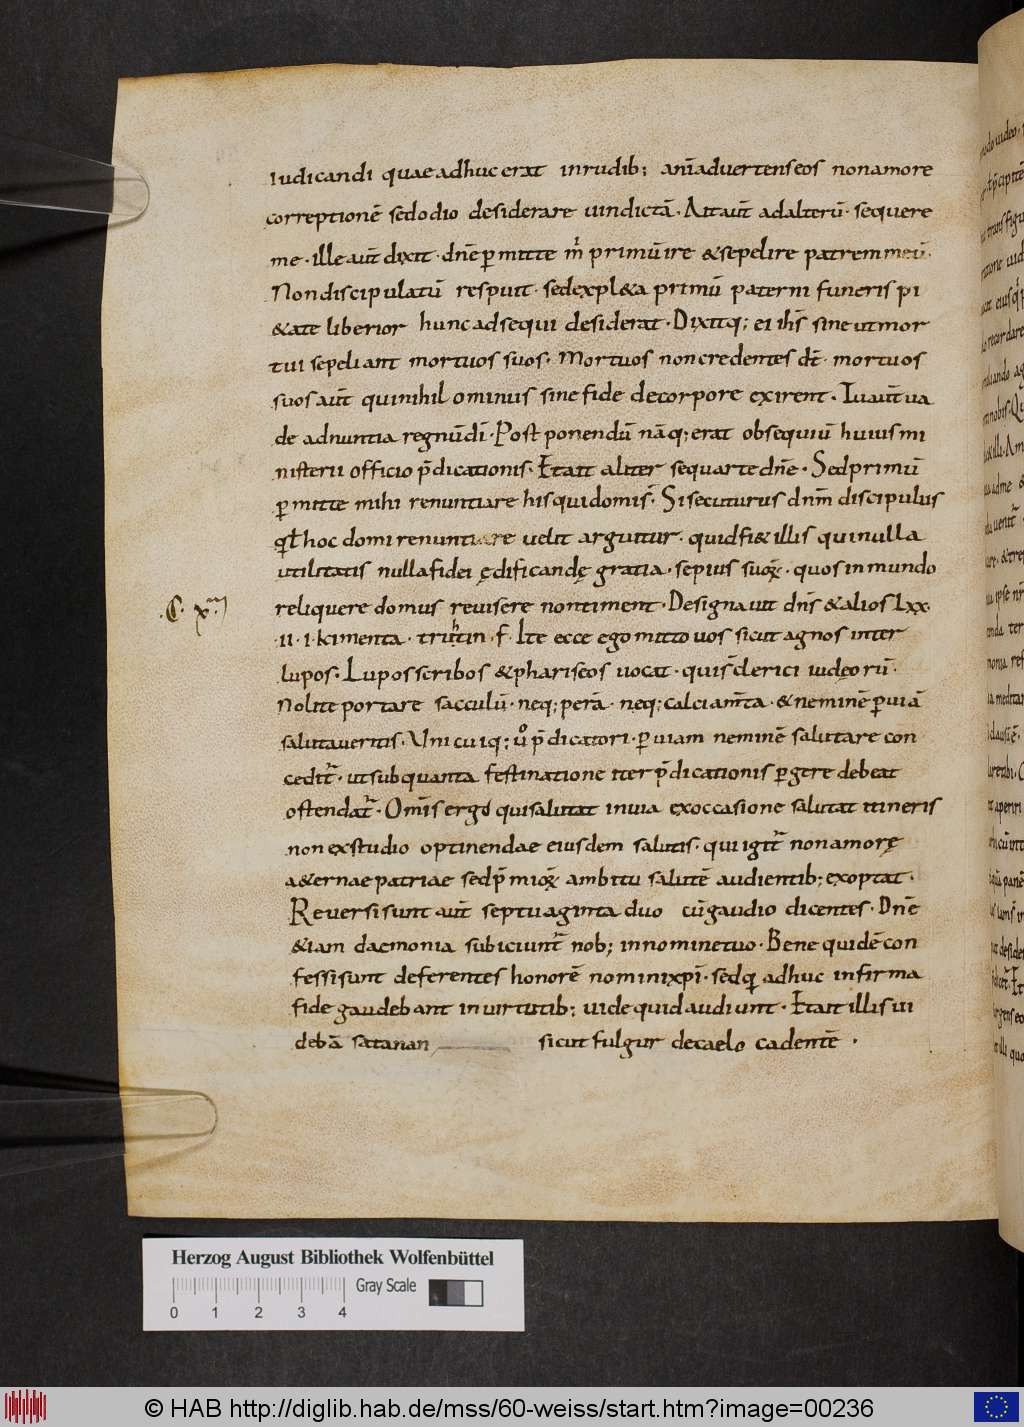 iudicandi quae adhuc erat inrudib; anīadvertens eos nonamore
correptionē sedodio desiderare uindictā. Ait aūt adalterū. sequere
me. ille aūt dixit. dnē p̄mitte m̅ primū ire & sepelire patrem meū.
Non discipulatū respuit. sed expl&a primū paterni funeris pi
&ate liberior hunc adsequi desiderat. Dixitq; ei ih̄s sine ut mor
tui sepeliant mortuos suos. Mortuos non credentes dt̄. mortuos
suos aūt qui nihil ominus sine fide decorpore exirent. Tu aūt ua
de adnuntia regnū dī. Postponendū nāq; erat obsequiū huius mi
nisterii officio p̄dicationis. Et ait alter sequar te dnē. Sed primū
p̄mitte mihi renuntiare his qui domī s̄. Si secuturus dnm̄ discipulus
qd̄ hoc domi renuntiare uelit arguitur. quid fi& illis qui nulla
utilitatis nulla fidei ędificandę gratia. sepius suoꝝ. quos in mundo
reliquere domus reuisere non timent. Designauit dn̄s & alios Lxx
.C. x
.ii. i. kimenta. . f. Ite ecce ego mitto uos sicut agnos inter
lupos. Lupos scribos & phariseos uocat. qui s̄ clerici iudęorū.
Nolite portare sacculū. neq; perā. neq; calciam̄ta. & neminē p̄ uiā
salutaueritis. Unicuiq; ů p̄dicatori. p̄ uiam neminē salutare con
cedit̄. ut sub quanta festinatione iter p̄dicationis p̄gere debeat
ostendat̄. Omīs ergo qui salutat in uia exoccasione salutat itineris
non ex studio optinendae eiusdem salutis. qui igit̄ non amorę
a&ernae patriae sed p̄mioꝝ ambitu salutē audientib; exoptat.
Reuersi sunt aūt septuaginta duo cū gaudio dicentes. Dnē
&iam daemonia subiciunt̄ nob; in nomine tuo. Bene quidē con
fessi sunt deferentes honorē nomini xp̄i. sed q̄ adhuc infirma
fide gaudebant in uirtutib; uide quid audiunt. Et ait illis ui
debā satanan sicut fulgur decaelo cadentē.
Herzog August Bibliothek Wolfenbüttel
Gray Scale
0 1 2 3 4
© HAB http://diglib.hab.de/mss/60-weiss/start.htm?image=00236